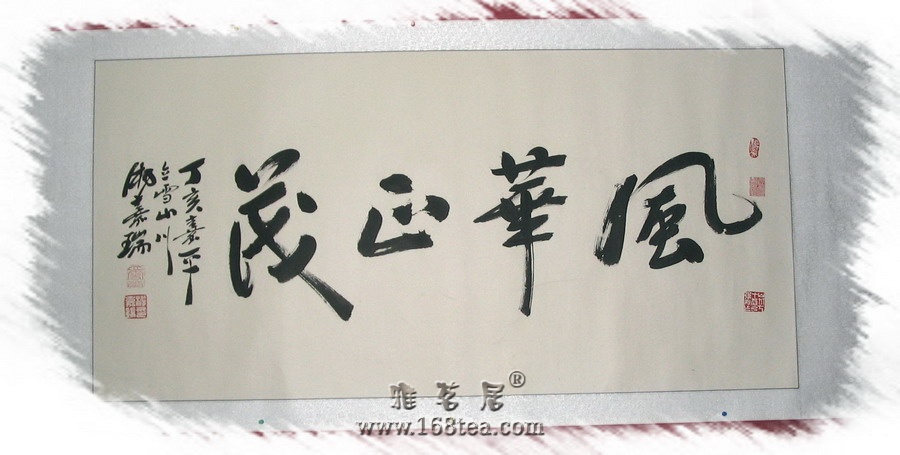 風華正茂
丁亥
雪山川
嘉瑞
雅茗居®
www.168tea.com